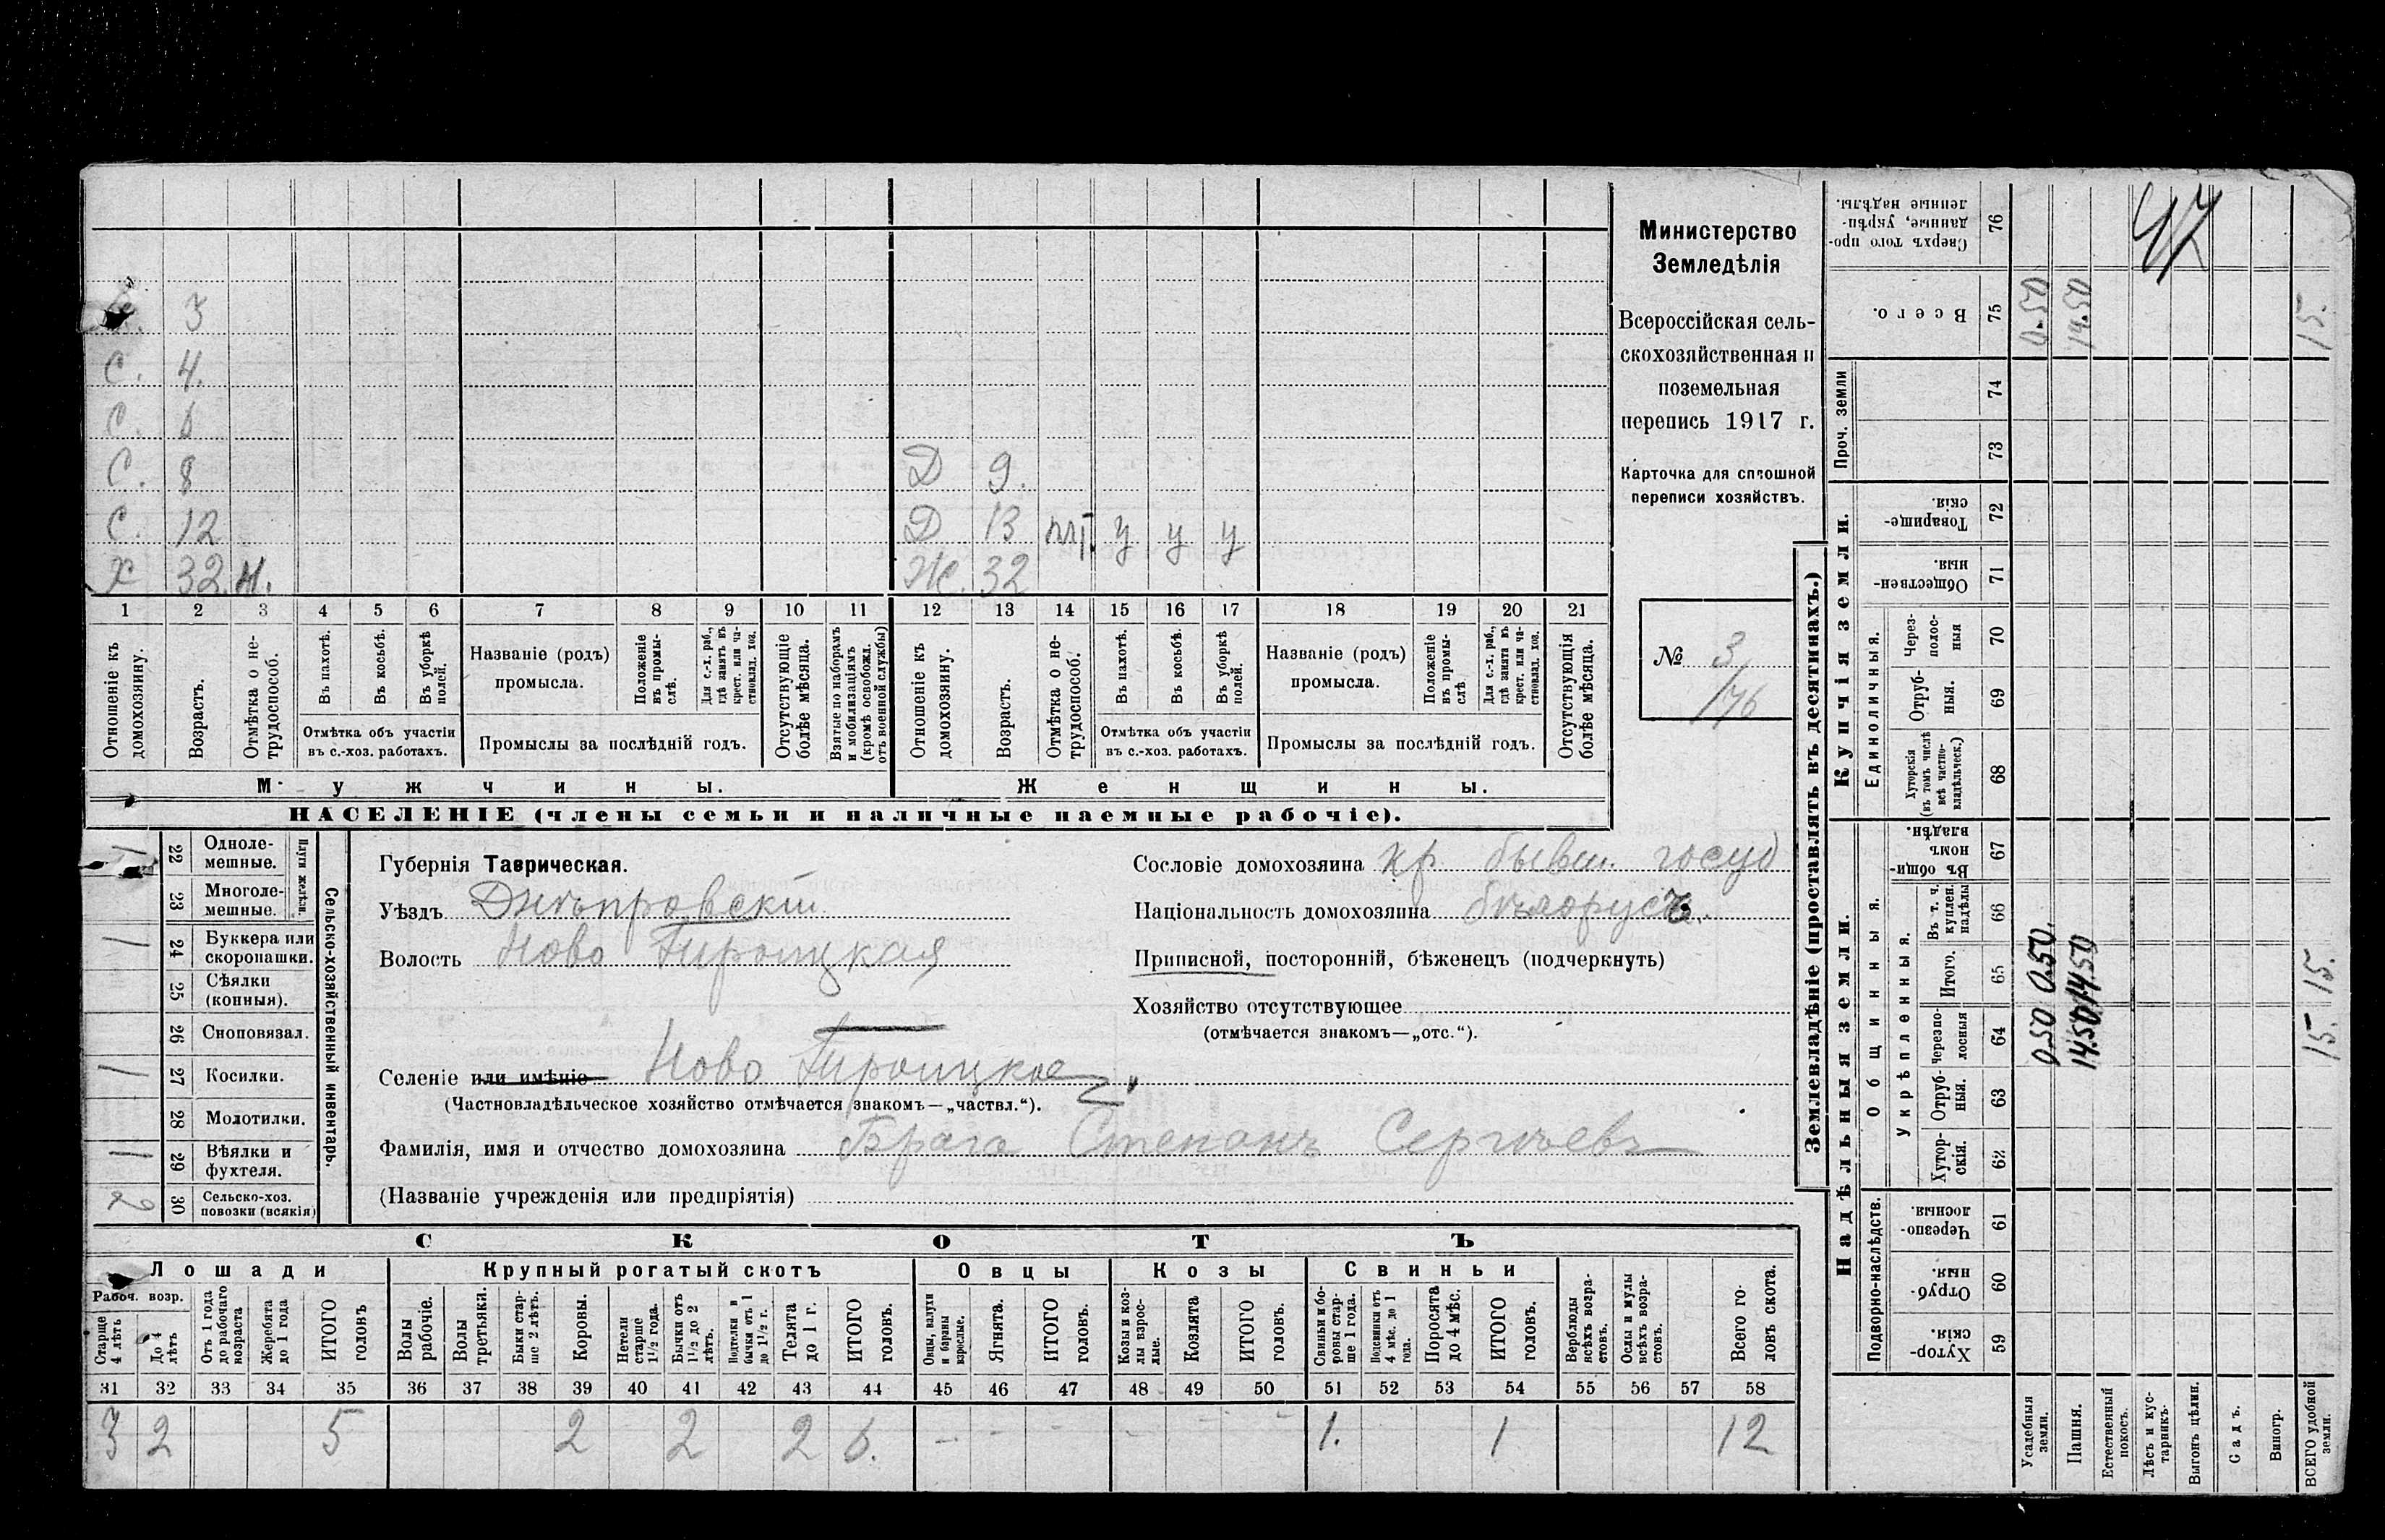 С. 3
С. 4.
С. 6
С. 8 Д 9.
С. 12 Д 13 у у у
Х 32. н. Ж. 32
1 2 3 4 5 6 7 8 9 10 11 12 13 14 15 16 17 18 19 20 21
Отношеніе къ домохозяину.
Возрастъ.
Отмѣтка о нетрудоспособ.
Въ пахотѣ.
Въ косьбѣ.
Въ уборкѣ полей.
Отмѣтка объ участіи
въ с.-хоз. работахъ.
Названіе (родъ)
промысла.
Положеніе въ промыслѣ.
Для с.-х. раб., гдѣ занятъ въ крест. или частновлад. хоз.
Промыслы за послѣдній годъ.
Отсутствующіе болѣе мѣсяца.
Взятые по наборамъ и мобилизаціямъ (кромѣ освобожд. отъ военной службы)
Отношеніе къ домохозяину.
Возрастъ.
Отмѣтка о нетрудоспособ.
Въ пахотѣ.
Въ косьбѣ.
Въ уборкѣ полей.
Отмѣтка объ участіи
въ с.-хоз. работахъ.
Названіе (родъ)
промысла.
Положеніе въ промыслѣ
Для с.-х. раб., гдѣ занята въ крест. или частновлад. хоз.
Промыслы за послѣдній годъ.
Отсутствующія болѣе мѣсяца.
Мужчины.
Женщины.
НАСЕЛЕНІЕ (члены семьи и наличные наемные рабочіе).
Министерство
Земледѣлія
Всероссійская сель-
скохозяйственная и
поземельная
перепись 1917 г.
Карточка для сплошной
переписи хозяйствъ.
№ 3/
176
Сельско-хозяйственный инвентарь.
Плуги желѣзн.
/ 22 Одноле-
мешные.
23 Многоле-
мешные.
/ 24 Буккера или
скоропашки.
25 Сѣялки
(конныя).
26 Сноповязал.
/ 27 Косилки.
28 Молотилки.
/ 29 Вѣялки и
фухтеля.
2 30 Сельско-хоз.
повозки (всякія)
Губернія Таврическая.
Уѣздъ Днѣпровскій
Волость Ново Троицкая
Селеніе или имѣніе Ново Троицкое
(Частновладѣльческое хозяйство отмѣчается знакомъ—„частвл.“).
Фамилія, имя и отчество домохозяина Брага Степанъ Сергѣевъ
(Названіе учрежденія или предпріятія)
Сословіе домохозяина кр. бывш. госуд
Національность домохозяина бѣлорусъ.
Приписной, посторонній, бѣженецъ (подчеркнуть)
Хозяйство отсутствующее
(отмѣчается знакомъ—„отс.“).
СКОТЪ
Лошади
Крупный рогатый скотъ
Овцы
Козы
Свиньи
Рабоч. возр.
Старше 4 лѣтъ
До 4 лѣтъ
Отъ 1 года до рабочаго возраста
Жеребята до 1 года
ИТОГО головъ
Волы рабочіе.
Волы третьяки.
Быки старше 2 лѣтъ.
Коровы.
Нетели старше 1½ года.
Бычки отъ 1½ до 2 лѣтъ.
Подтелки и бычки отъ 1 до 1½ г.
Телята до 1 г.
ИТОГО головъ.
Овцы, валухи и бараны взрослые.
Ягнята.
ИТОГО головъ.
Козы и козлы взрослые.
Козлята
ИТОГО головъ.
Свиньи и боровы старше 1 года.
Подсвинки отъ 4 мѣс. до 1 года.
Поросята до 4 мѣс.
ИТОГО головъ.
Верблюды всѣхъ возрастовъ.
Ослы и мулы всѣхъ возрастовъ.
Всего головъ скота.
31 32 33 34 35 36 37 38 39 40 41 42 43 44 45 46 47 48 49 50 51 52 53 54 55 56 57 58
3 2 5 2 2 2 6. – – – – – – 1. 1 12
Землевладѣніе (проставлять въ десятинахъ.)
Надѣльныя земли.
Купчія земли.
Проч. земли
Подворно-наслѣдств.
Общинныя.
Укрѣпленныя.
Единоличныя.
Сверхъ того проданные, укрѣпленные надѣлы. 76
Всего. 75 0.50 14.50 15.
74
73
Товарищескія. 72
Общественныя. 71
Черезполосныя 70
Отрубныя. 69
Хуторскія (въ томъ числѣ всѣ частновладѣльческ.) 68
Въ общиномъ владѣн. 67
Въ т. ч. куплен. надѣлы 66
Итого. 65 0.50. 14.50 15.
Черезполосныя 64 0.50 14.50 15.
Отрубныя. 63
Хуторскія. 62
Черезполосныя. 61
Отрубныя. 60
Хуторскія 59
Усадебныя земли.
Пашня.
Естественный покосъ.
Лѣсъ и кустарникъ.
Выгонъ цѣлин.
Садъ.
Виногр.
ВСЕГО удобной земли.
47